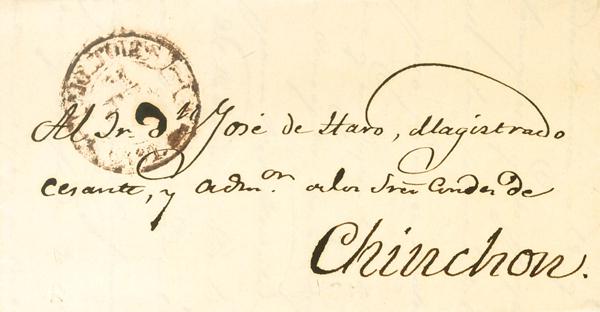 Al Sr. Dn José de Haro, Magistrado
cesante, y admor. de los Sres Condes de
Chinchon.